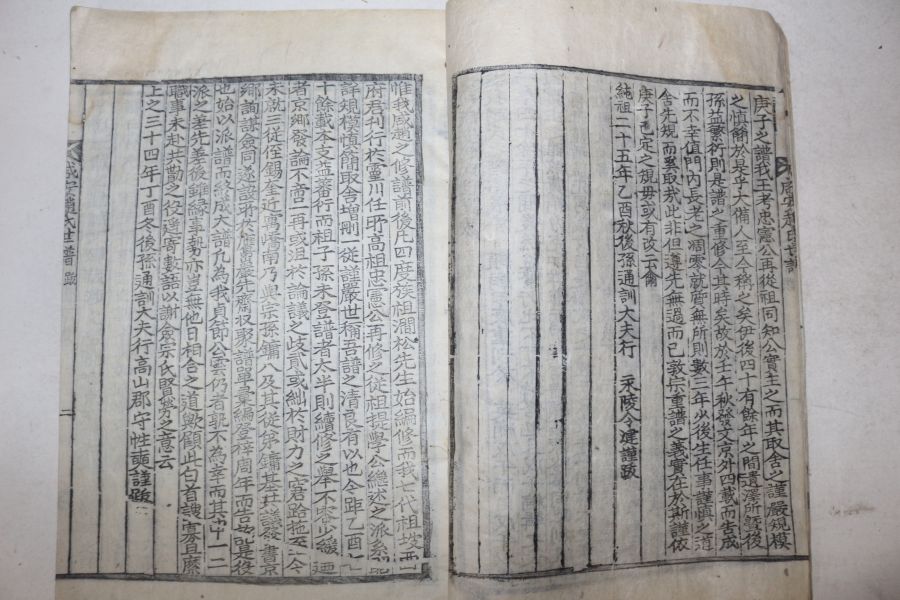 庚子之譜我王考忠憲公再從祖同知公實主之而其取舍之謹嚴規模
之愼飭於是乎大備人至今稱之矣伊後四十有餘年之間遺澤所曁後
孫益繁衍則是譜之重修今其時矣故於壬午秋發文京外四載而告成
而不幸値門內長老之凋零就質無所則數三年少後生任事謹愼之道
舍先規而奚取哉此非但遵先無過而已敦宗重譜之義實在於斯謹依
庚子已定之規毋或有改云爾
純祖二十五年乙酉秋後孫通訓大夫行 陵令建謹跋
惟我咸趙之修譜前後凡四度族祖澗松先生始編修而我七代祖坡西
府君刊行於靈川任所高祖忠憲公再修之從祖提學公繼述之派系
詳規模愼飭取舍增刪一從謹嚴世稱吾譜之淸良有以也今距乙酉七
十餘載本支益蕃衍而祖子孫未登譜者太半則續修之擧不容少緩
者京鄕發論不啻一再或沮於論議之歧貳或絀於財力之窘路拖至今
未就三從侄錫奎近寓嶠南乃與宗孫鏞八及其從弟鏞基共議發書京
鄕詢謀僉同遂設所於應巖先齋收聚譜單彙編登梓周年而告訖是役
也始以派譜而終成大譜凡爲我貞節公雲仍者孰不爲幸而其中一二
派之差先差後雖緣事勢亦豈無他日相合之道歟顧此白首謏寡且縻
職事未赴共勤之役遂寄數語以謝僉宗氏賢勞之意云
上之三十四年丁酉冬後孫通訓大夫行高山郡守性 謹跋
咸安趙氏世譜 跋 二